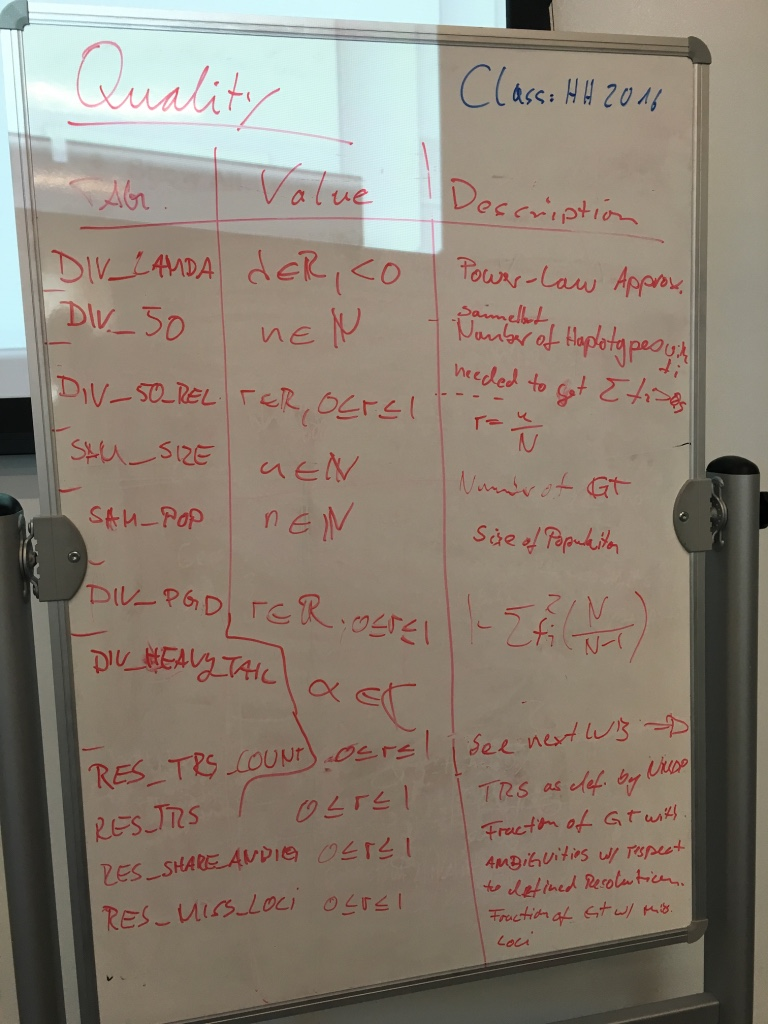 Quality
Class: HH 2016
Value Description
DIV_LAMDA λ∈ℝ, <0 Power-Law Approx.
DIV_50 n∈ℕ Number of Haplotypes with
needed to get Σ fi
DIV_50_REL r∈ℝ, 0≤r≤1 r = n/N
SAM_SIZE n∈ℕ Number of GT
SAM_POP n∈ℕ Size of Population
DIV_PGD r∈ℝ, 0≤r≤1 1- Σ fi² (N/N-1)
DIV_HEAVY_TAIL α ∈
RES_TRS_COUNT 0≤r≤1 See next WB →
RES_TRS 0≤r≤1 TRS as def. by NMDP
RES_SHARE_AMBIG 0≤r≤1 Fraction of GT with
AMBIGUITIES w/ respect
to defined Resolution.
RES_MISS_LOCI 0≤r≤1 Fraction of GT w/ mis.
Loci